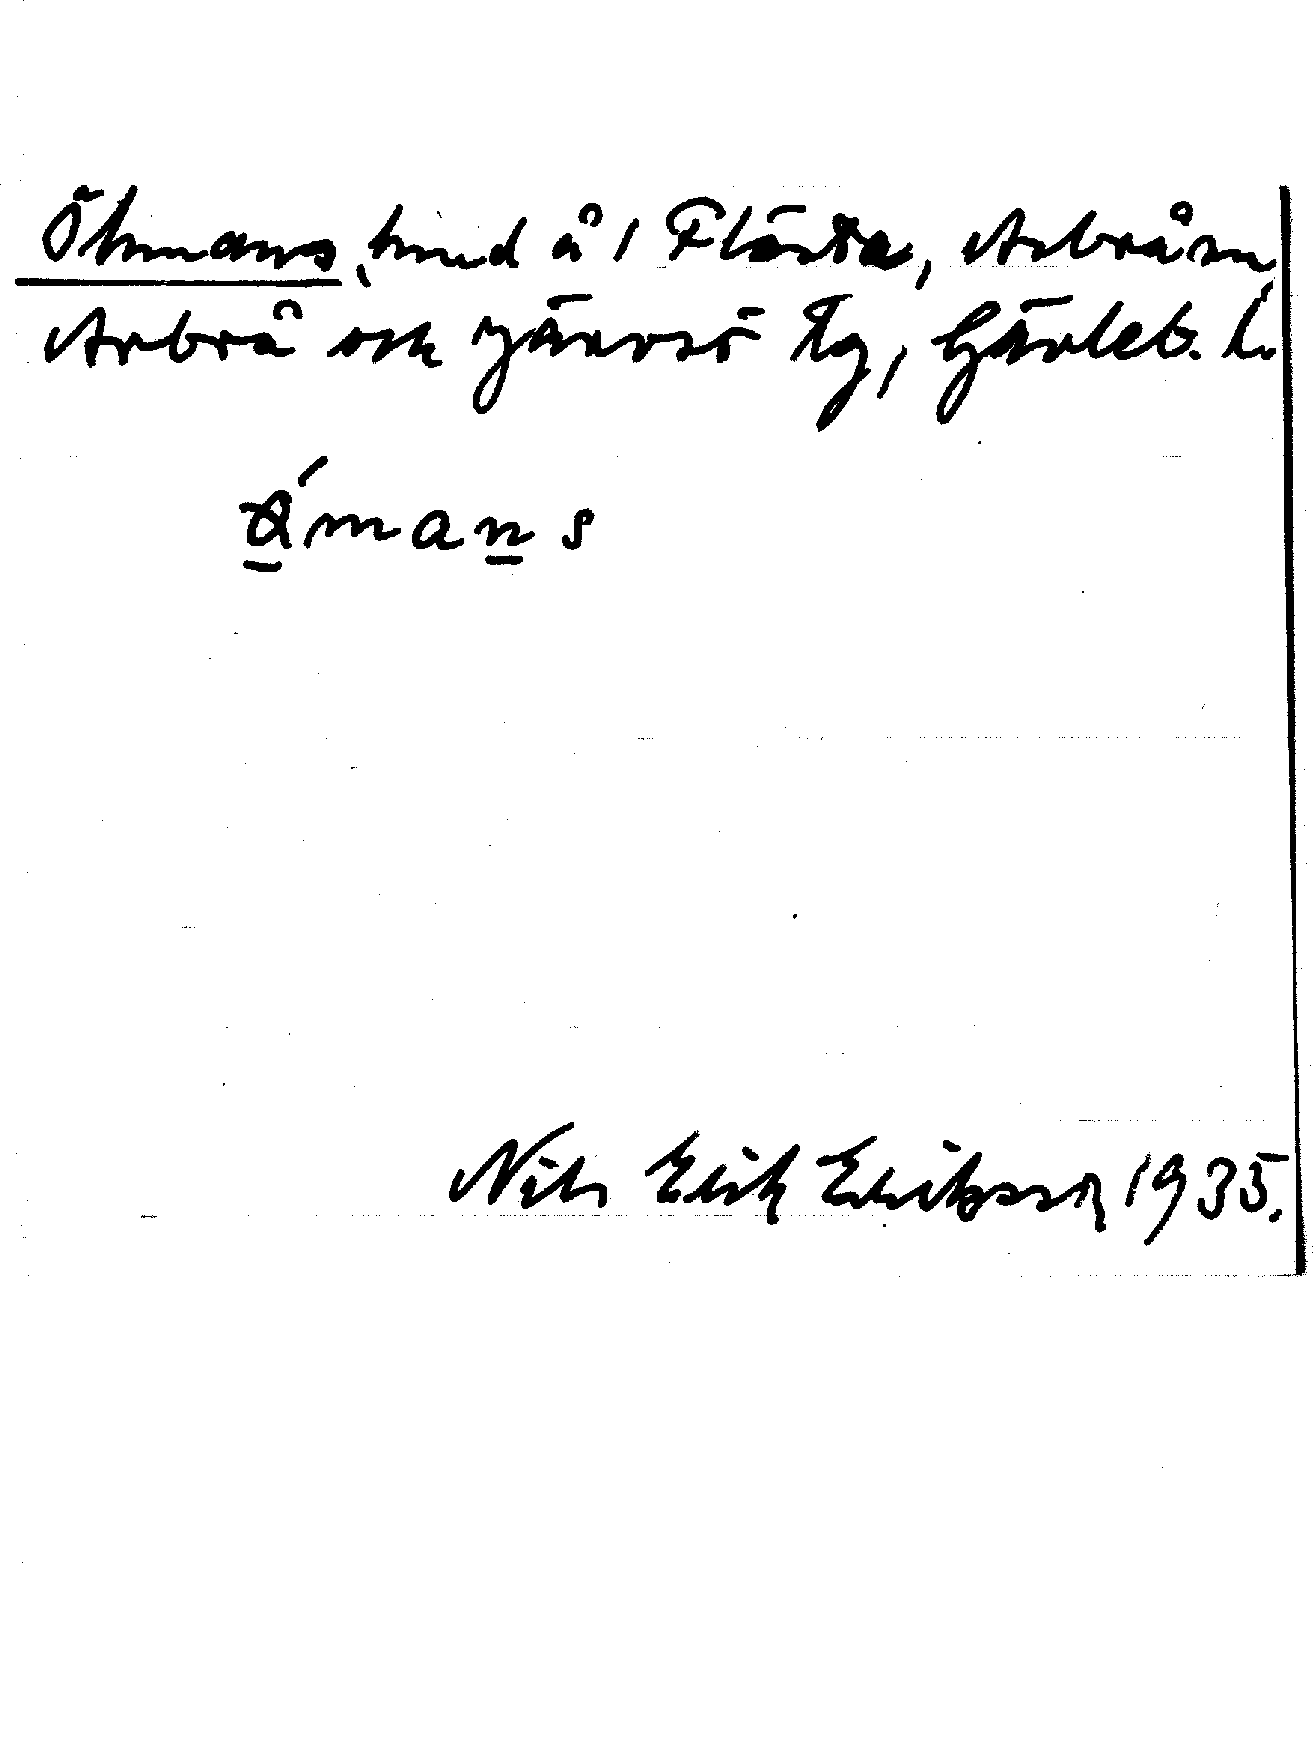 Öhmans, hmd å 1 Flästa, Arbrå sn,
Arbrå och Järvsö tg, Gävleb. l.
mans
Nils Erik Eriksson 1935.